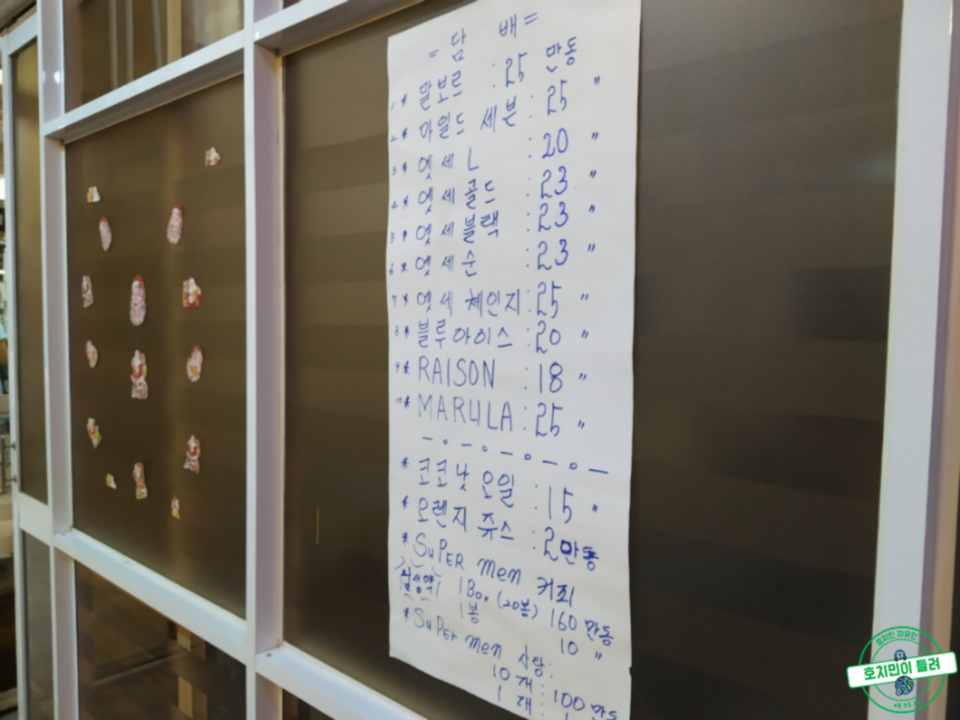 = 담 배 =
1 * 말보르 : 25 만동
2 * 마일드 세븐 : 25 "
3 * 엣세 L : 20 "
4 * 엣세 골드 : 23 "
5 * 엣세 블랙 : 23 "
6 * 엣세 순 : 23 "
7 * 엣세 체인지 : 25 "
8 * 블루 아이스 : 20 "
9 * RAISON : 18 "
* MARULA : 25 "
* 코코낫 오일 : 15 "
* 오렌지 쥬스 : 2만동
* SuPER men 커피
1 Box (20봉) 160 만동
1봉 10 "
* SuPer men 사탕 :
10 개 : 100 만동
1 개 :
호치민 자유인
호치민이 들려